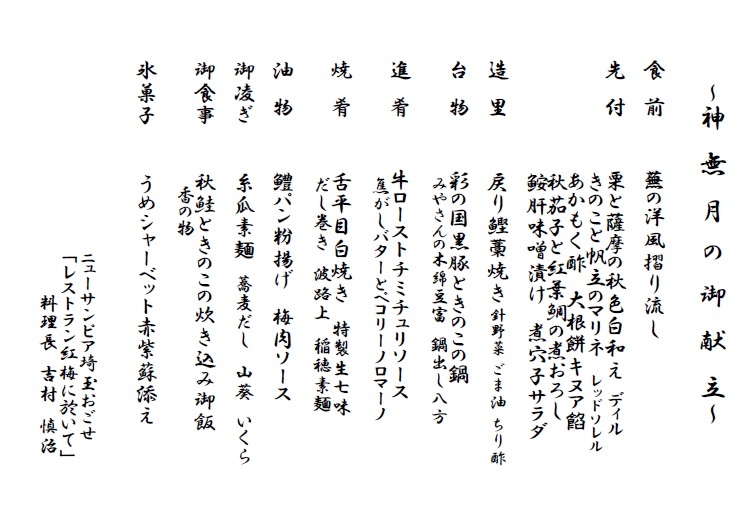 ～神無月の御献立～
食前　蕪の洋風摺り流し
先付　栗と薩摩の秋色白和え　ディル
きのこと帆立のマリネ　レッドソレル
あかもく酢　大根餅キヌア餡
秋茄子と紅葉鯛の煮おろし
鮟肝味噌漬け　煮穴子サラダ
造里　戻り鰹藁焼き　針野菜　ごま油　ちり酢
台物　彩の国黒豚ときのこの鍋
みやさんの木綿豆富　鍋出し八方
進肴　牛ローストチミチュリソース
焦がしバターとペコリーノロマーノ
焼肴　舌平目白焼き　特製生七味
だし巻き　波路上　稲穂素麺
油物　鱧パン粉揚げ　梅肉ソース
御凌ぎ　糸瓜素麺　蕎麦だし　山葵　いくら
御食事　秋鮭ときのこの炊き込み御飯
香の物
氷菓子　うめシャーベット赤紫蘇添え
ニューサンピア埼玉おごせ
「レストラン紅梅に於いて」
料理長　吉村　慎治